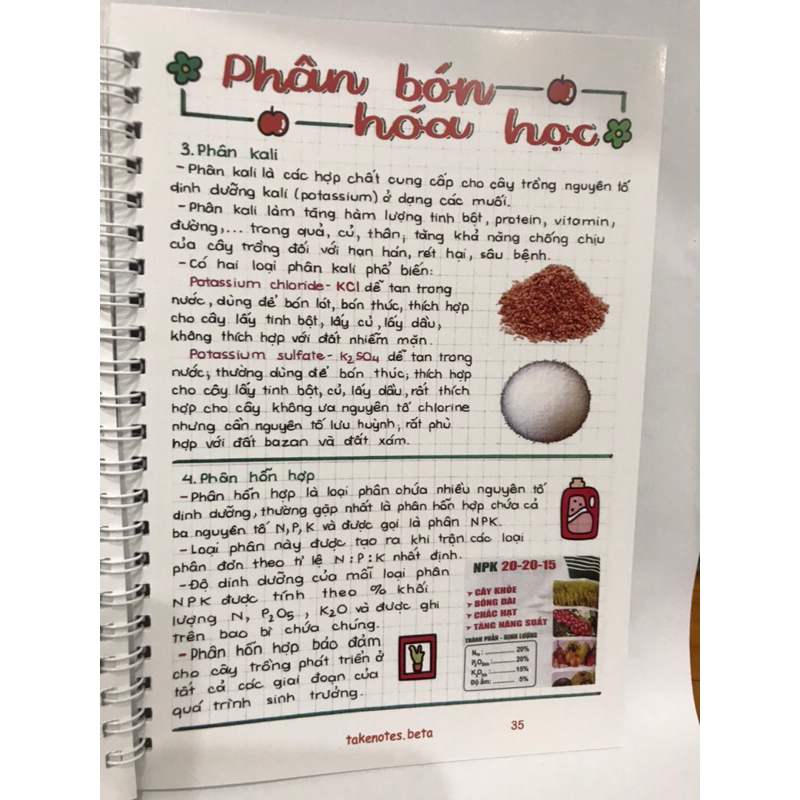 Phân bón
hóa học
3. Phân kali
- Phân kali là các hợp chất cung cấp cho cây trồng nguyên tố
dinh dưỡng kali (potassium) ở dạng các muối.
- Phân kali làm tăng hàm lượng tinh bột, protein, vitamin,
đường,... trong quả, củ, thân; tăng khả năng chống chịu
của cây trồng đối với hạn hán, rét hại, sâu bệnh.
- Có hai loại phân kali phổ biến:
Potassium chloride - KCl dễ tan trong
nước, dùng để bón lót, bón thúc, thích hợp
cho cây lấy tinh bột, lấy củ, lấy dầu,
không thích hợp với đất nhiễm mặn.
Potassium sulfate - K₂SO₄ dễ tan trong
nước; thường dùng để bón thúc; thích hợp
cho cây lấy tinh bột, củ, lấy dầu, rất thích
hợp cho cây không ưa nguyên tố chlorine
nhưng cần nguyên tố lưu huỳnh; rất phù
hợp với đất bazan và đất xám.
4. Phân hỗn hợp
- Phân hỗn hợp là loại phân chứa nhiều nguyên tố
dinh dưỡng, thường gặp nhất là phân hỗn hợp chứa cả
ba nguyên tố N, P, K và được gọi là phân NPK.
- Loại phân này được tạo ra khi trộn các loại
phân đơn theo tỉ lệ N : P : K nhất định.
- Độ dinh dưỡng của mỗi loại phân
NPK được tính theo % khối
lượng N, P₂O₅, K₂O và được ghi
trên bao bì chứa chúng.
- Phân hỗn hợp bảo đảm
cho cây trồng phát triển ở
tất cả các giai đoạn của
quá trình sinh trưởng.
NPK 20-20-15
CÂY KHỎE
BÔNG DÀI
CHẮC HẠT
TĂNG NĂNG SUẤT
THÀNH PHẦN - ĐỊNH LƯỢNG
Nts: 20%
P₂O₅hh: 20%
K₂Ohh: 15%
Độ ẩm: 5%
takenotes.beta
35